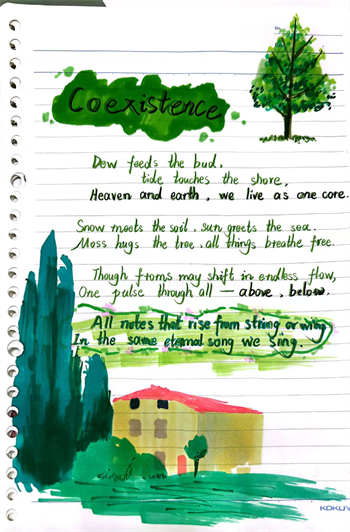 No.
Coexistence
Dew feeds the bud.
tide touches the shore,
Heaven and earth, we live as one core.
Snow meets the soil, sun greets the sea.
Moss hugs the tree, all things breathe free.
Though froms may shift in endless flow,
One pulse through all — above, below.
All notes that rise from string or wing
In the same eternal song we sing.
KOKUY